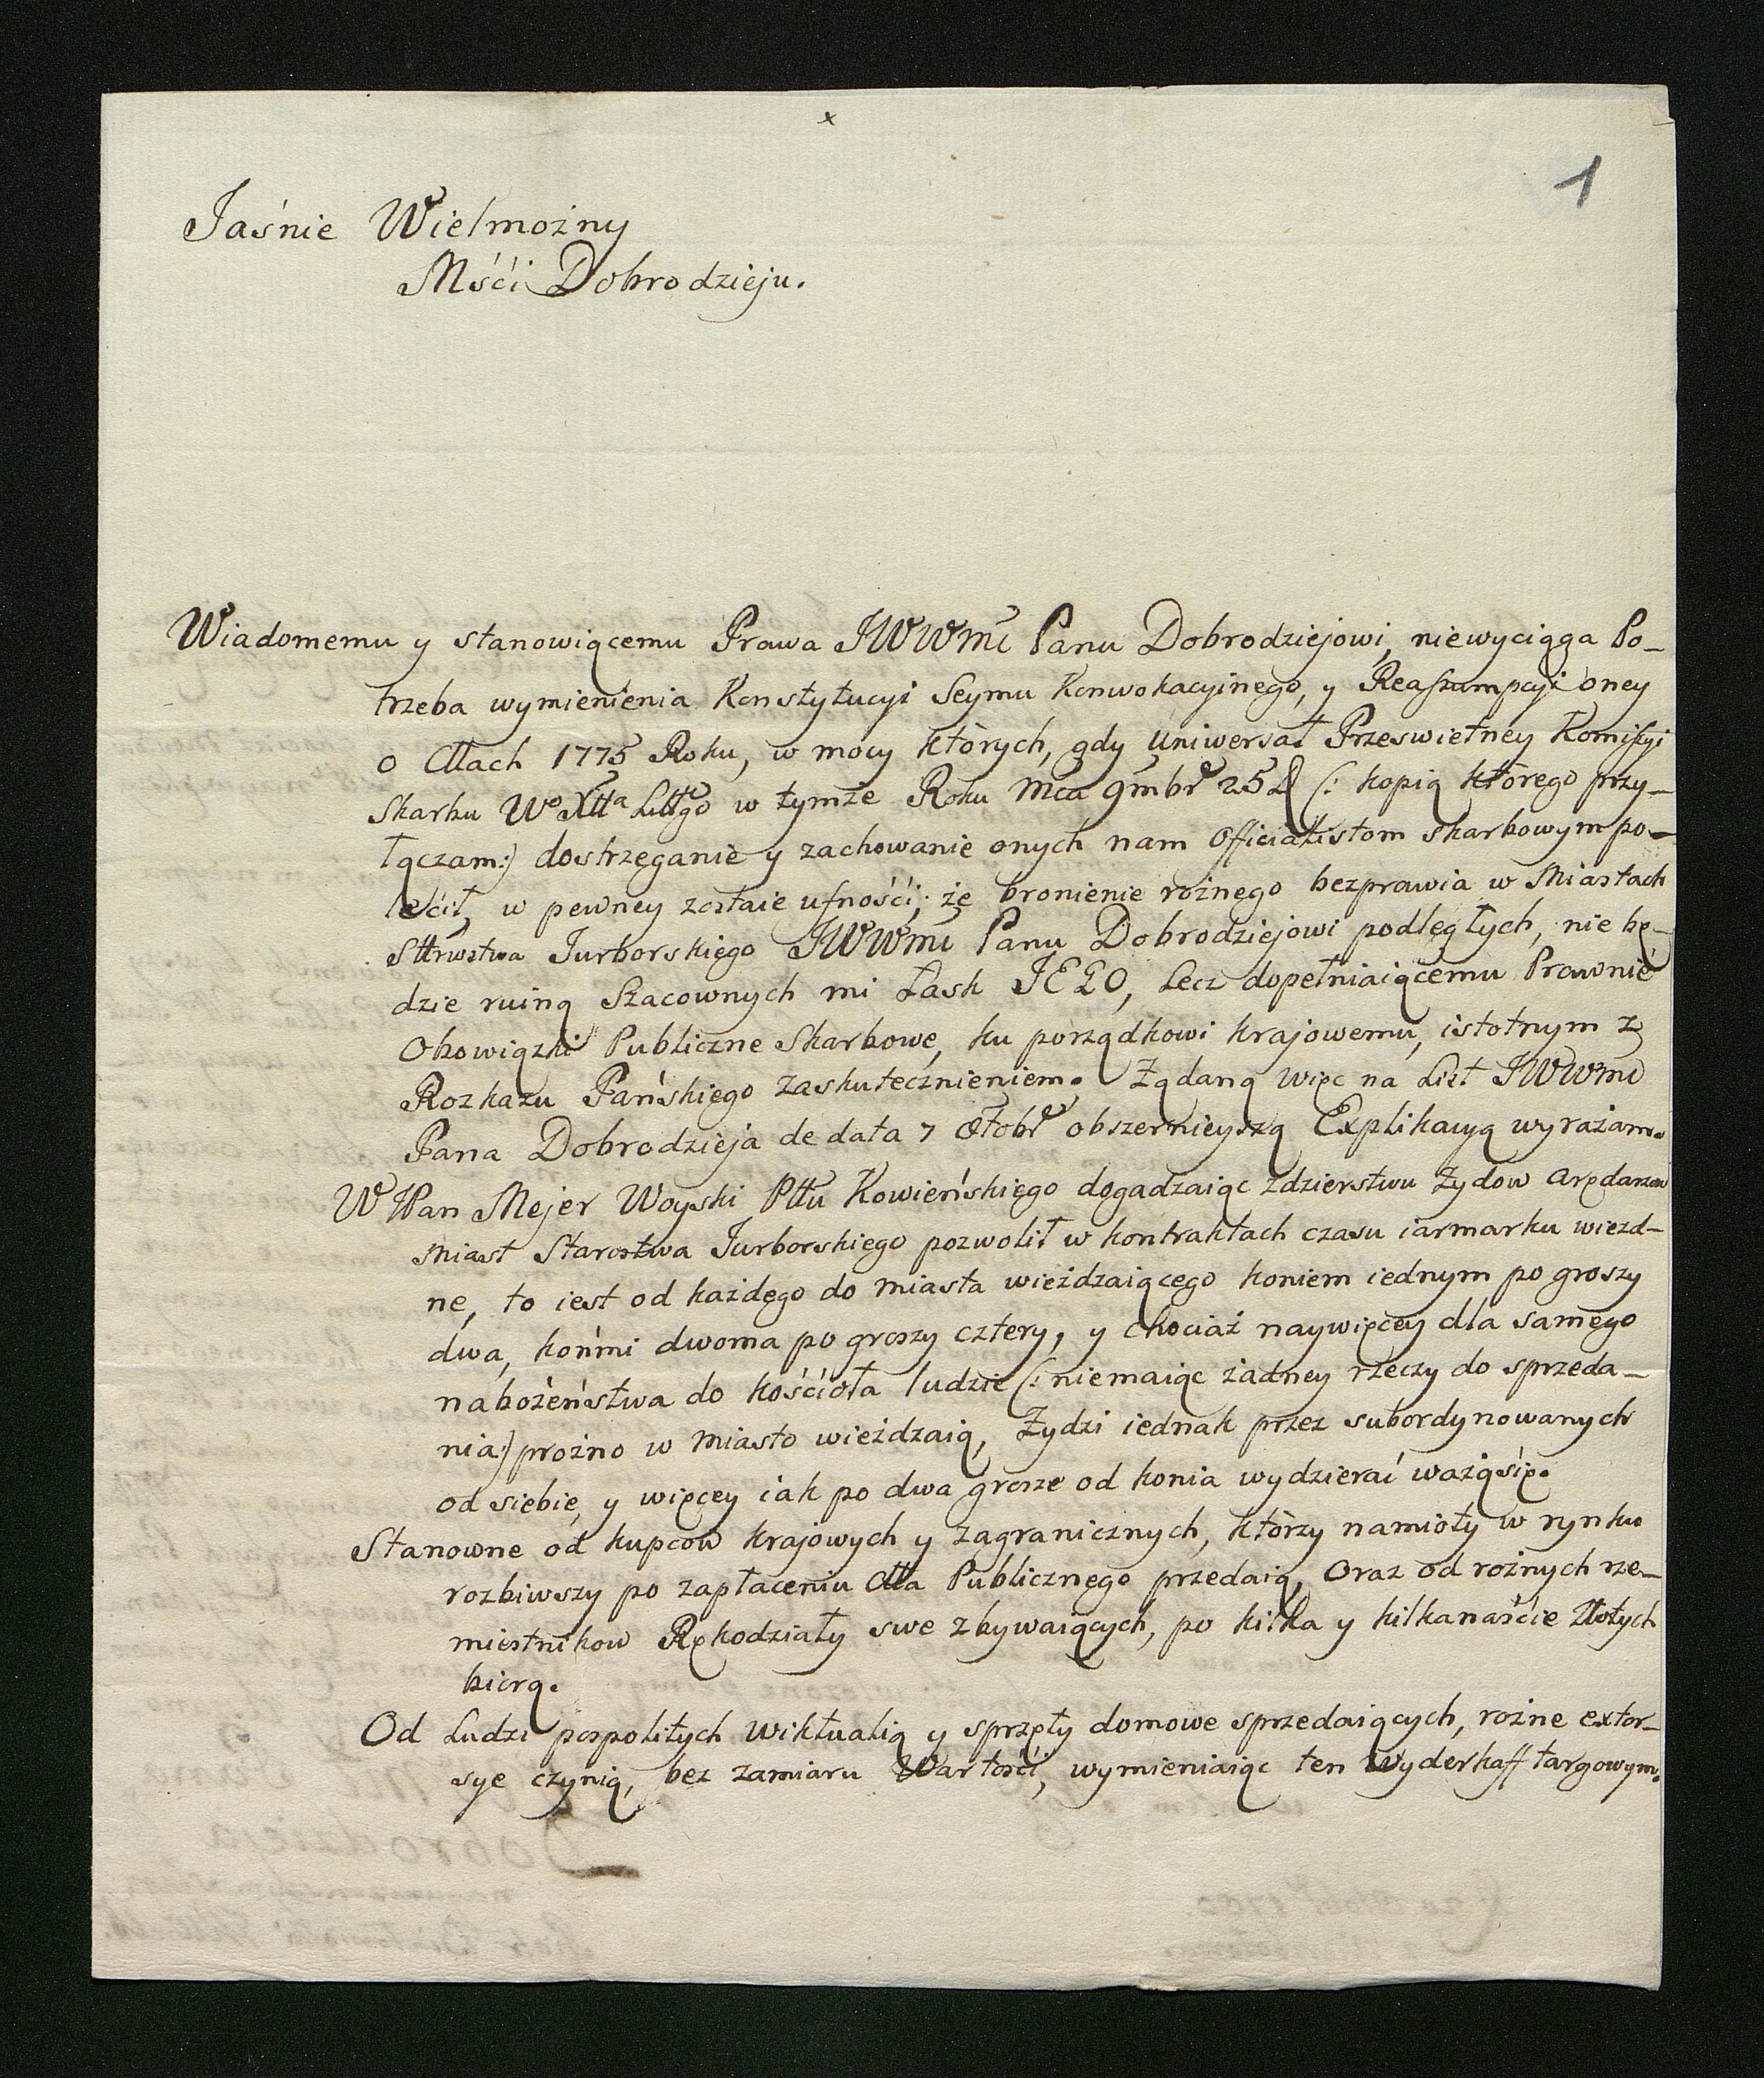 x
1
Jaśnie Wielmożny
Mśći Dobrodzieju.
Wiadomemu y stanowiącemu Prawa JWWmć Panu Dobrodziejowi, niewyciąga Po-
trzeba wymienienia Konstytucyi Seymu Konwokacyinego, y Reaſsumpcyi oney
o Cłłach 1775 Roku, w mocy których, gdy Uniwersał Przeswietney Komiſsyi
Skarbu Wo Xtta Littgo w tymże Roku Mca 9mbr 25 (: kopią którego przy-
łączam:) dostrzeganie y zachowanie onych nam Officialistom skarbowym po-
lećił, w pewney zostaie ufnośći; że bronienie rożnego bezprawia w Miastach
Sttrwstwa Jurborskiego JWWmć Panu Dobrodziejowi podległych, nie bę-
dzie ruiną Szacownych mi Łask JEGO, Lecz dopełniaiącemu Prawnie
Obowiązki Publiczne Skarbowe, ku porządkowi krajowemu, istotnym z
Rozkazu Pańskiego zaskutecznieniem. Żądaną więc na List JWWmć
Pana Dobrodzieja de data 7 Octobr obszernieyszą Explikacyą wyrażam.
WJPan Mejer Woyski Pttu Kowieńskiego dogadzaiąc zdzierstwu Żydow Arędarzow
Miast Starostwa Jurborskiego pozwolił w kontraktach czasu iarmarku wiezd-
ne, to iest od każdego do miasta wieżdzaiącego koniem iednym po groszy
dwa, końmi dwoma po groszy cztery, y chociaż naywięcey dla samego
nabożeństwa do kośćioła ludzie (: niemaiąc żadney rzeczy do sprzeda-
nia:) prożno w miasto wieżdzaią, Żydzi iednak przez subordynowanych
od siebie, y więcey iak po dwa grosze od konia wydzierać ważą się.
Stanowne od kupcow krajowych y zagranicznych, którzy namioty w rynku
rozbiwszy po zapłaceniu Cłła Publicznego przedaią, Oraz od rożnych rze-
miestnikow Rękodziały swe zbywaiących, po kilka y kilkanaśćie Złłotych
biorą.
Od Ludzi pospolitych wiktualią y sprzęty domowe sprzedaiących, rożne extor-
sye czynią, bez zamiaru Wartośći, wymieniaiąc ten Wyderkaff targowym.